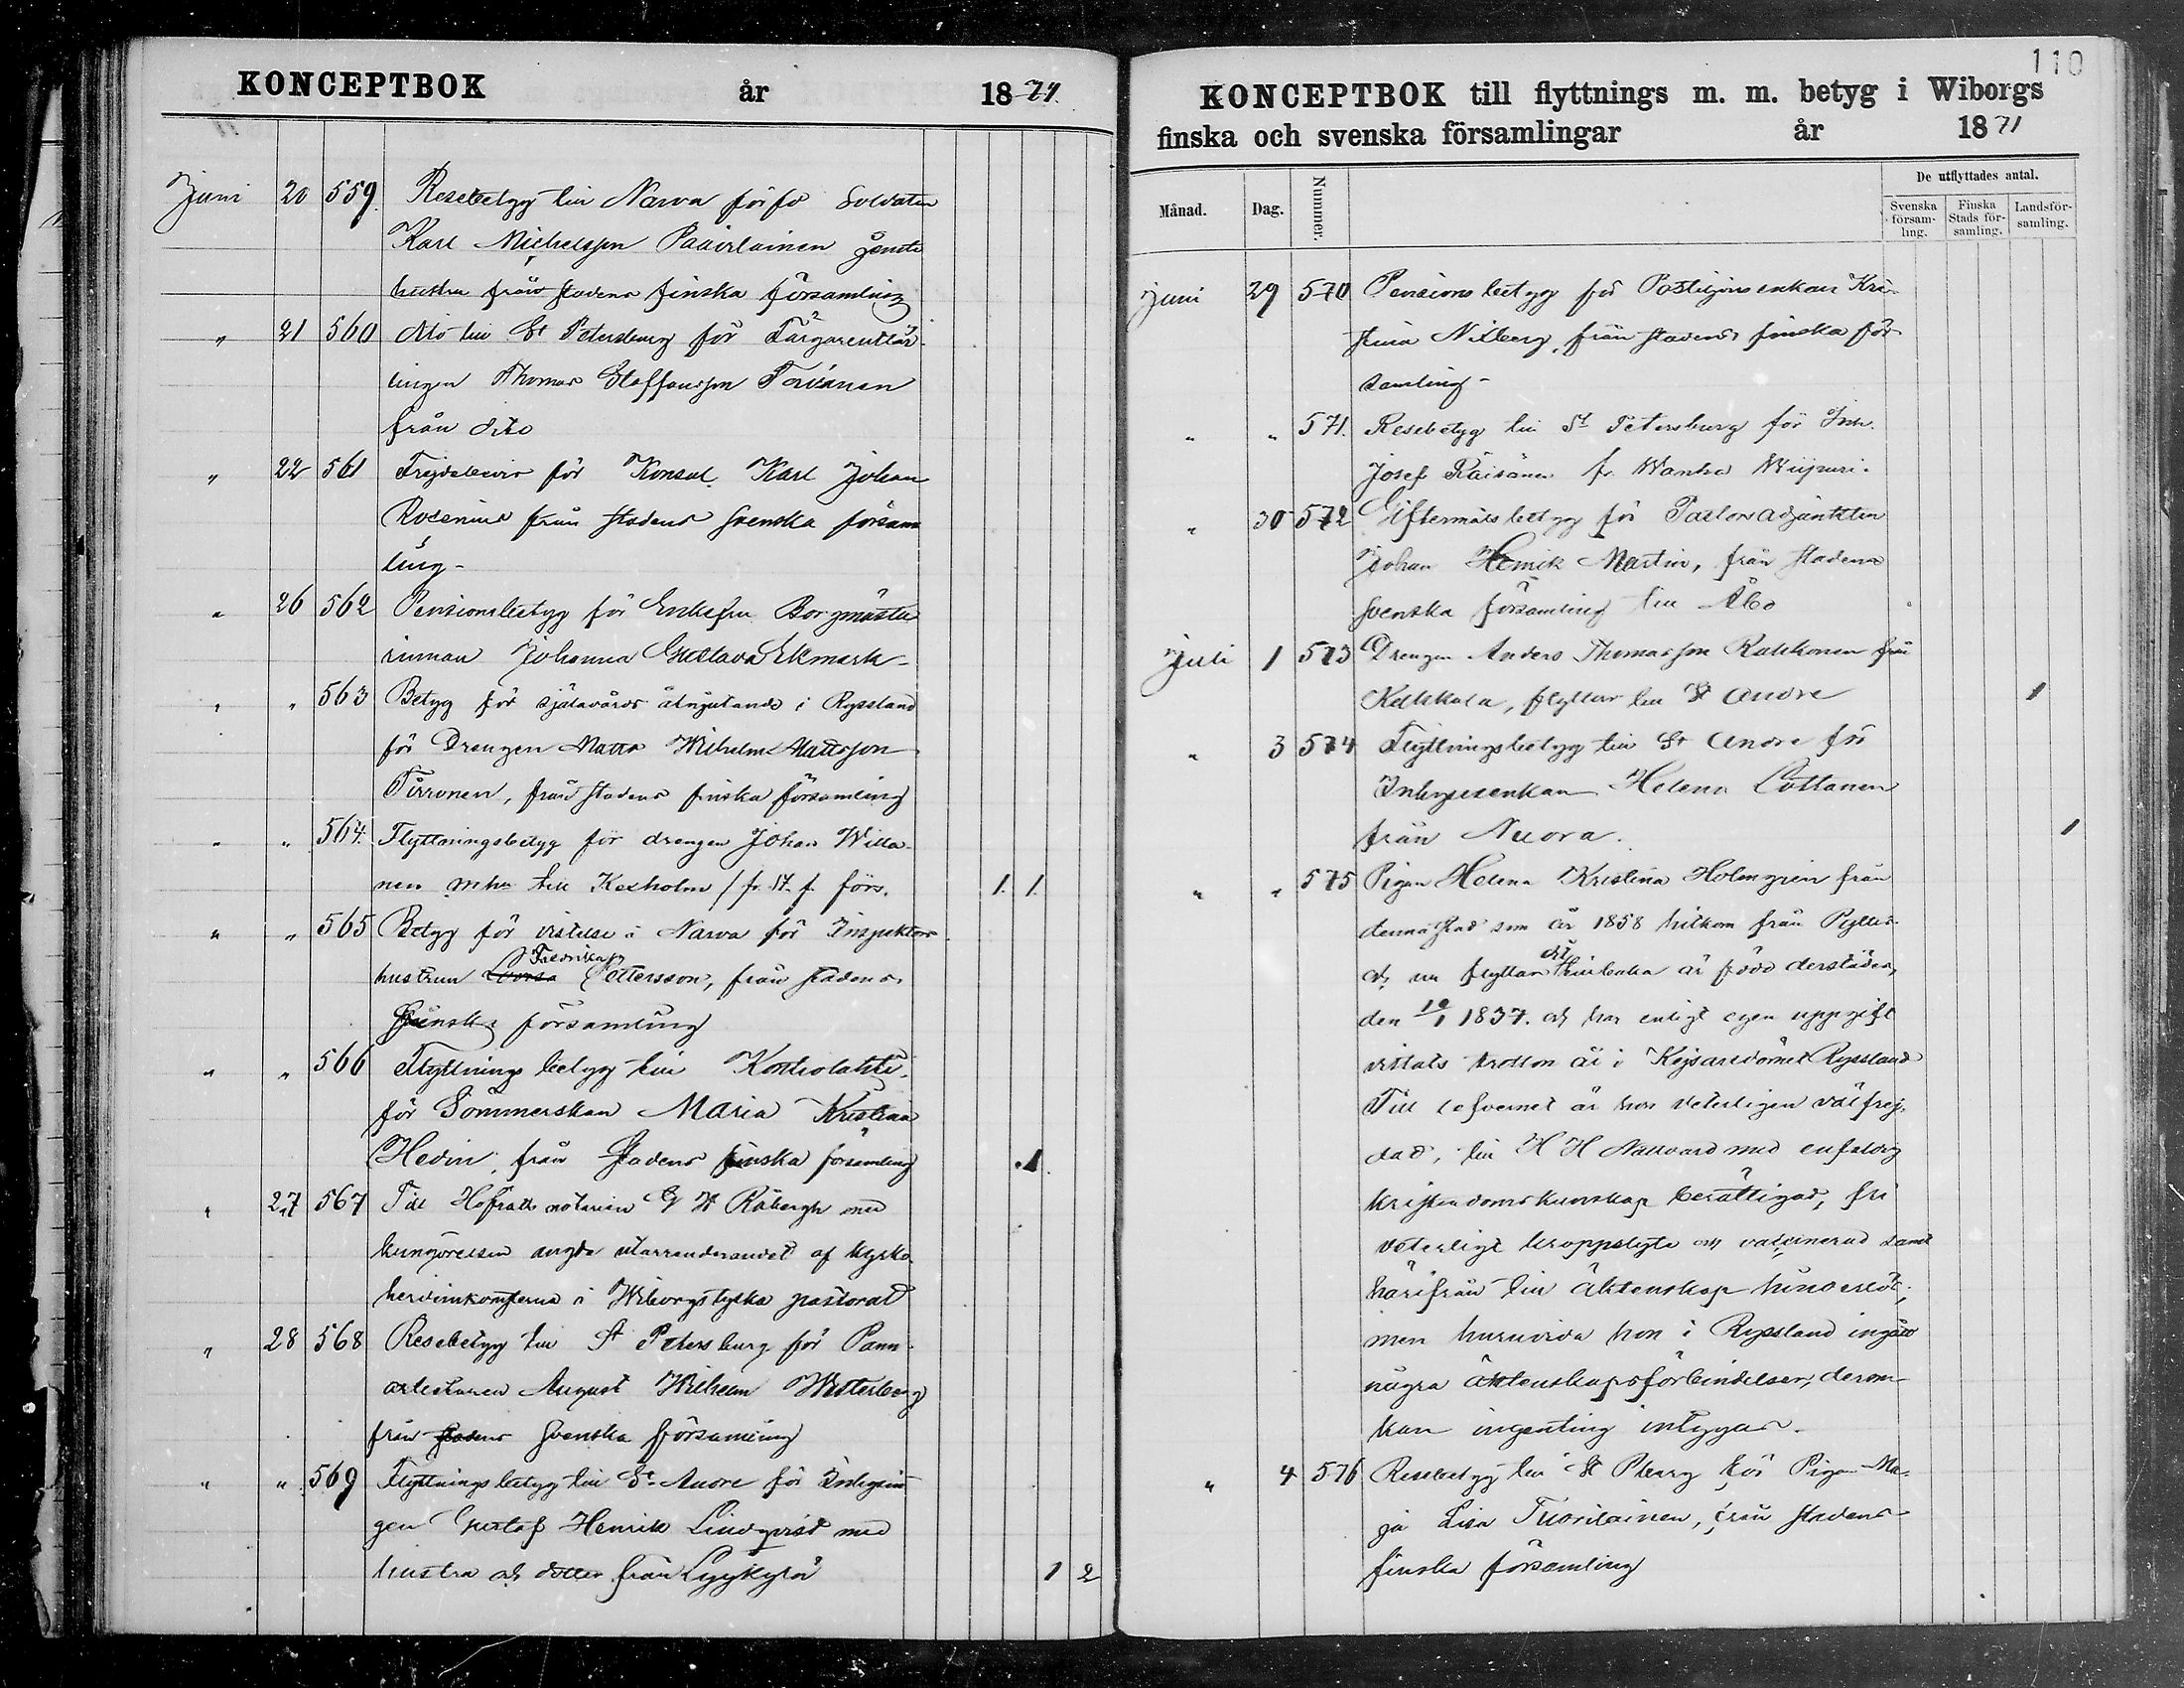 110
KONCEPTBOK år 1871.
Juni 20 559. Resebetyg till Narva för fd Soldaten
Karl Michelsson Pääivläinen jemte
hustru från stadens finska församling
" 21 560 dito till St Petersburg för Färgarenlär-
lingen Thomas Staffansson Toivanen
från dito
" 22 561 Frejdebevis för Konsul Karl Johan
Rosenius från stadens svenska försam
ling-
" 26 562 Pensionsbetyg för Enkefru Borgmäste
rinnan Johanna Gustava Ekmark-
" " 563 Betyg för själavårds åtnjutande i Ryssland
för Drengen Matts Wilhelm Mattsson
Tirronen, från stadens finska församling
" " 564. Flyttningsbetyg för drengen Johan Willa-
nen mhu till Kexholm / fr. St. f. förs. 1. 1.
" " 565 Betyg för vistelse i Narva för Inspektors
Fredrika
hustrun Lovisa Pettersson, från stadens
svenska församling
" " 566 Flyttnings betyg till Kontiolahti
för Sömmerskan Maria Kristina
Hedin, från Stadens finska församling 1.
" 27 567 Till Hofrätts notarien G W Råbergh med
kungörelsen angde utarrenderandet af kyrko
herdinkomsterna i Wiborgs tyska pastorat
" 28 568 Resebetyg till St Petersburg för Pann-
arbetaren August Wilhelm Westerberg
från stadens Svenska församling
" " 569 Flyttnings betyg till St. Andre för Inhysin
gen Gustaf Henrik Lindqvist med
hustru och dotter från Lyykylä 1 2
KONCEPTBOK till flyttnings m. m. betyg i Wiborgs
finska och svenska församlingar år 1871
Månad. Dag. Nummer. De utflyttades antal.
Svenska församling. Finska Stads församling. Landsförsamling.
Juni 29 570 Pensions betyg för Postiljons enkan Kri-
stina Nilberg, från stadens finska för
samling-
" " 571. Resebetyg till St Petersburg för Inh.
Josef Räisänen fr. Wanha Wiipuri.
" 30 572 Giftermåls betyg för Pastorsadjunkten
Johan Henrik Martin, från stadens
svenska församling till Åbo
Juli 1 573 Drengen Anders Thomasson Rakkonen från
Kakkala, flyttar till St Andre 1
" 3 574 Flyttningsbetyg till St Andre för
Inhysesenkan Helena Cottanen
från Nuora. 1
" " 575 Pigan Helena Kristina Holmgren från
denna stad som år 1858 hitkom från Pyttis
dit
och nu flyttar tillbaka är född derstädes,
den 10/1 1837. och har enligt egen uppgift
vistats tretton år i Kejsaredömet Ryssland
Till lefvernet är hon veterligen välfrej-
dad, till H H Nattvard med enfaldig
kristendomskunskap berättigad, fri
veterligt kroppslyte och vaccinerad samt
härifrån till äktenskap hinderlös;
men huruvida hon i Ryssland ingått
några äktenskapsförbindelser, derom
kan ingenting intygas.
" 4 576 Resebetyg till St Pburg för Pigan Ma-
ja Lisa Tuorilainen, från stadens
finska församling